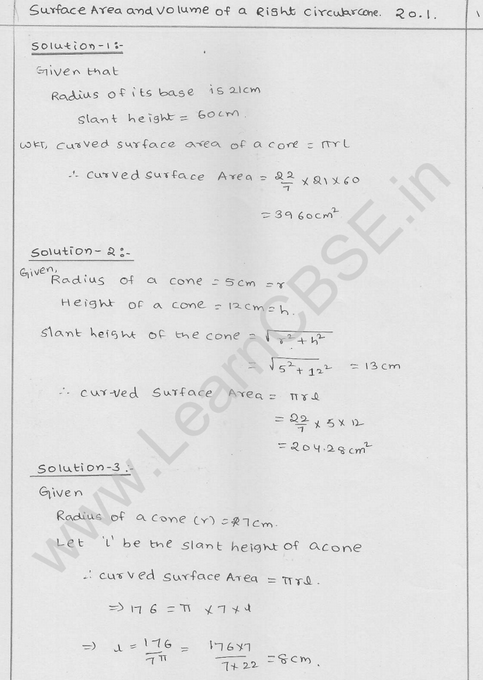 Surface Area and volume of a Right circular cone. 20.1.
Solution-1:-
Given that
Radius of its base is 21cm
Slant height = 60cm.
WKT, curved surface area of a cone = πrl
∴ curved surface Area = 22/7 × 21 × 60
= 3960cm²
Solution-2:-
Given,
Radius of a cone = 5cm = r
Height of a cone = 12cm = h.
Slant height of the cone = √r² + h²
= √5² + 12² = 13cm
∴ curved surface Area = πrl
= 22/7 × 5 × 12
= 204.28cm²
Solution-3:-
Given
Radius of a cone (r) = 7cm.
Let 'l' be the slant height of a cone
∴ curved surface Area = πrl.
⇒ 176 = π × 7 × l
⇒ l = 176/7π = 176×7/7×22 = 8cm.
www.LearnCBSE.in